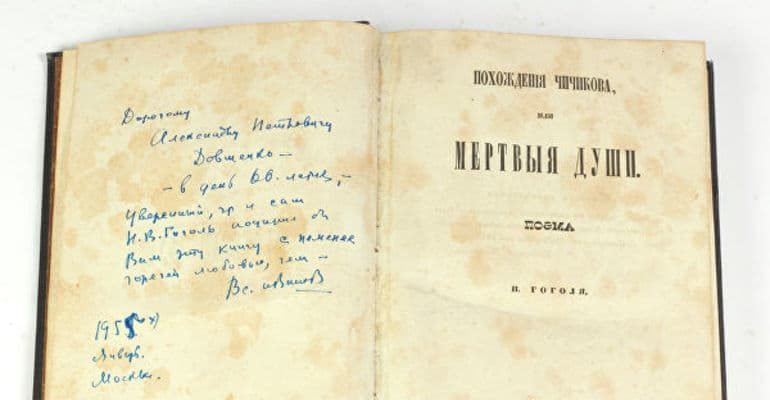 Дорогому
Александру Петровичу
Довженко —
— в день 60-летия, —
Уверенный, что и сам
Н. В. Гоголь бы
Вам эту книгу с неменее
горячей любовью, чем —
Вс. Иванов
Январь.
Москва.
ПОХОЖДЕНІЯ ЧИЧИКОВА,
ИЛИ
МЕРТВЫЯ ДУШИ.
ПОЭМА
Н. ГОГОЛЯ.